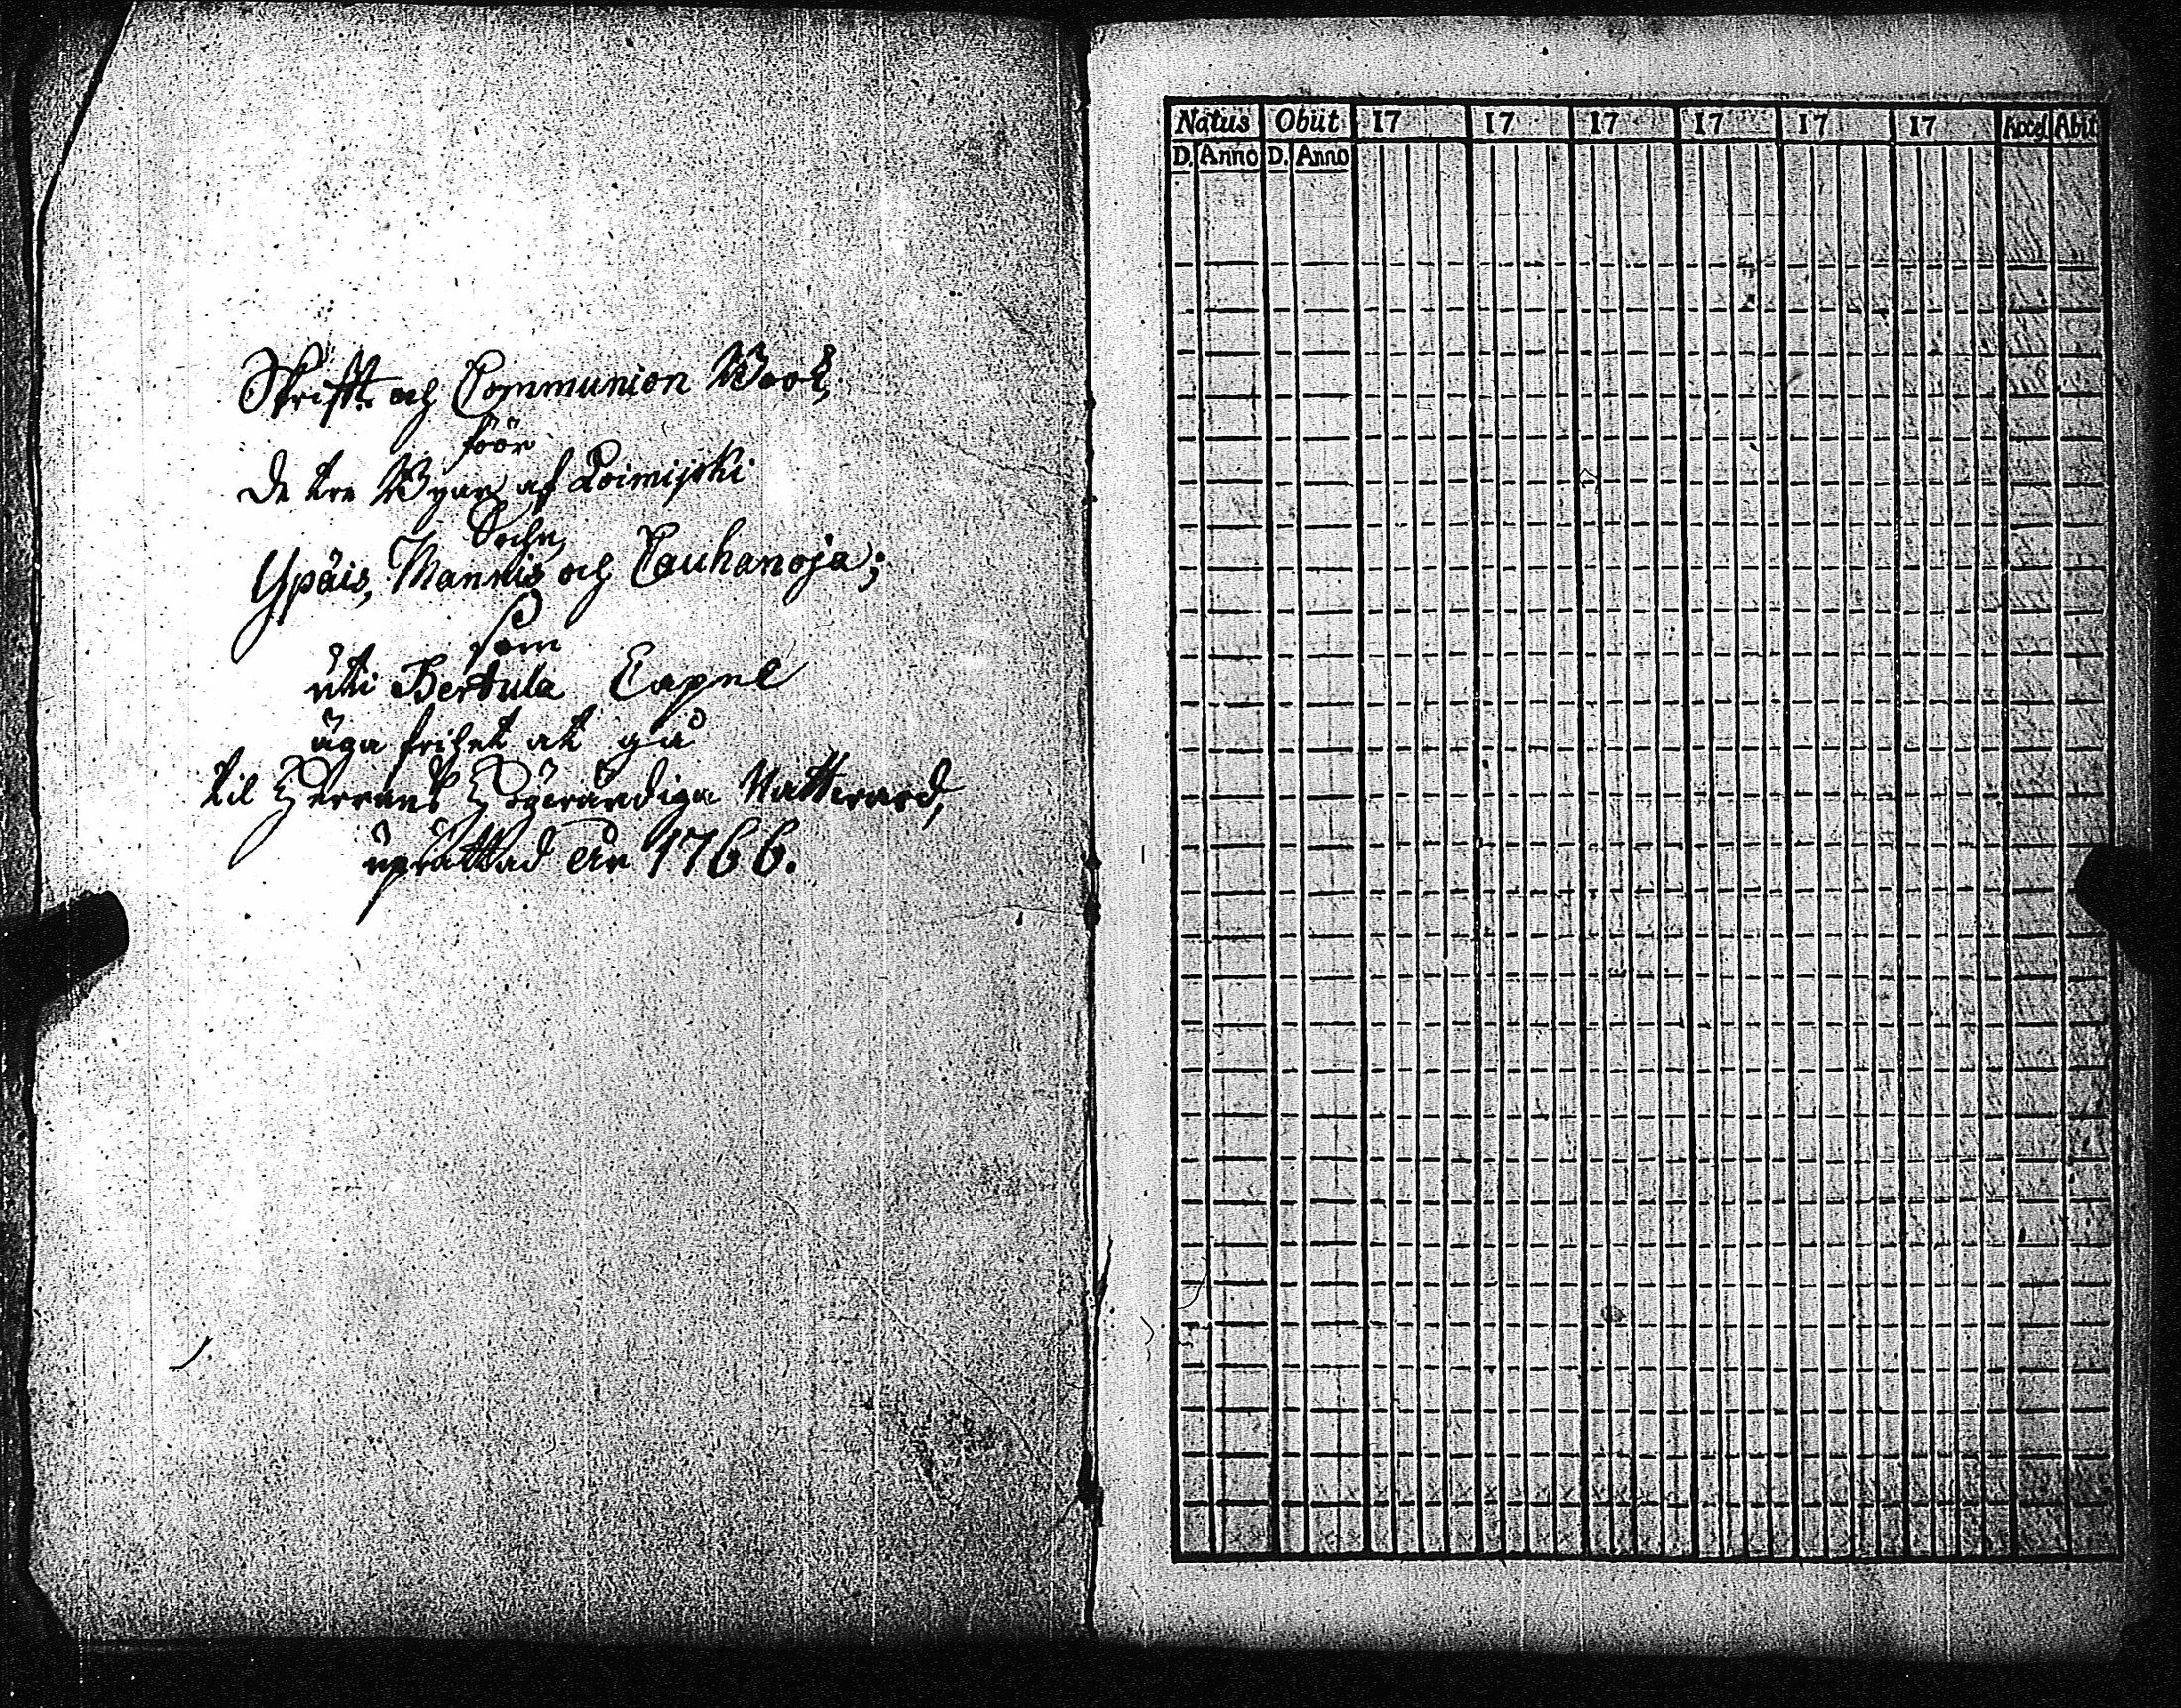 Skrifft och Communion Book,
föör
de tre Byar af Loimijoki
Sochn,
Ypäis, Mannis och Cauhanoja;
som
uti Pertula Capel
äga frihet at gå
til Herrans Högwärdiga Nattward,
uprättad År 1766.
Natus Obiit 17 17 17 17 17 17 Acces Abit
D. Anno D. Anno